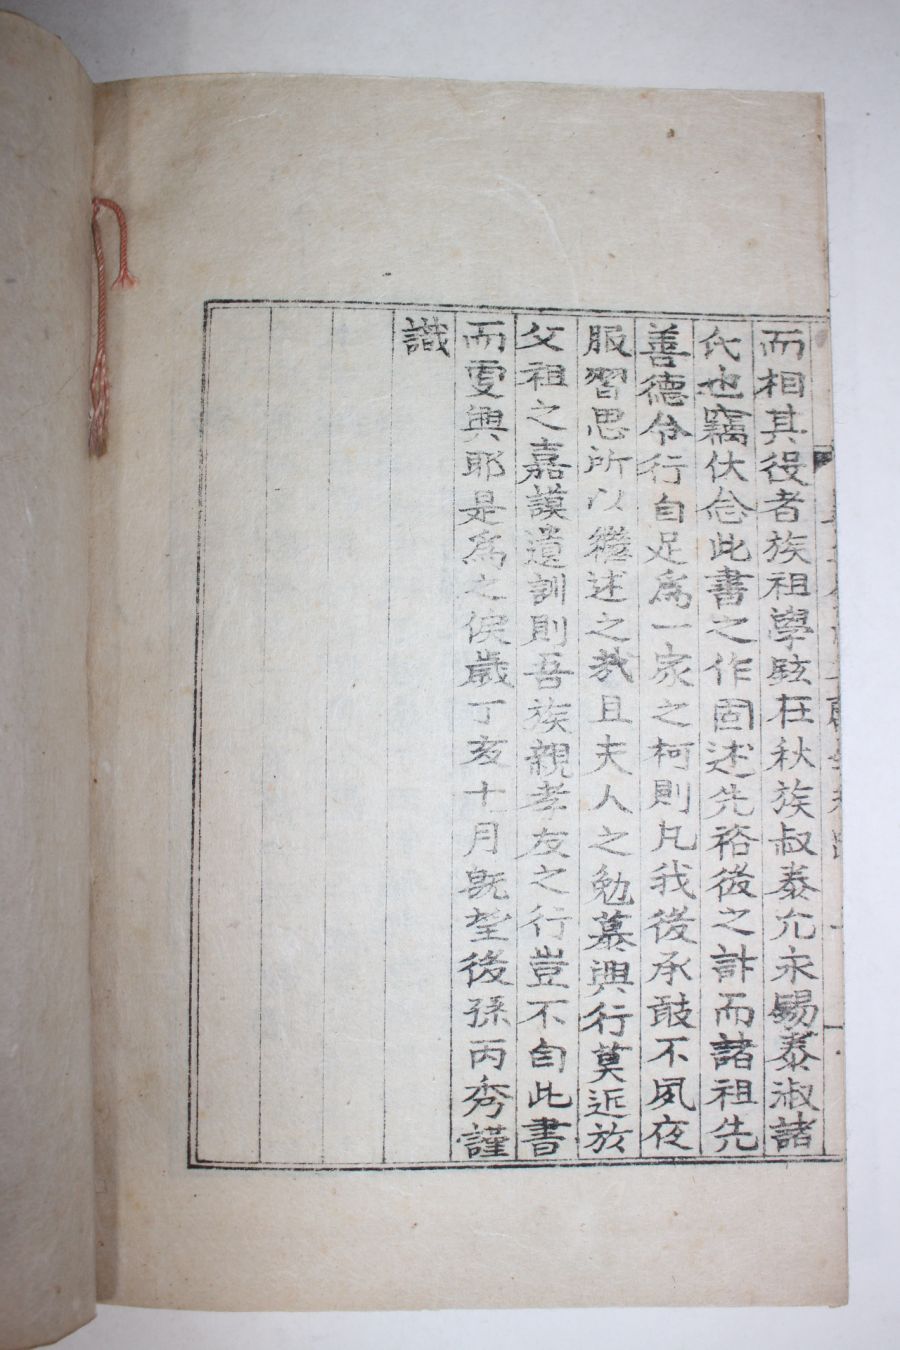 而相其役者族祖學鉉在秋族叔泰允永賜泰淑諸
氏也竊伏念此書之作固述先裕後之計而諸祖先
善德令行自足爲一家之柯則凡我後承敢不夙夜
服習思所以繼述之哉且夫人之勉慕興行莫近於
父祖之嘉謨遺訓則吾族親孝友之行豈不自此書
而更興耶是爲之俟歲丁亥十月旣望後孫丙秀謹
識